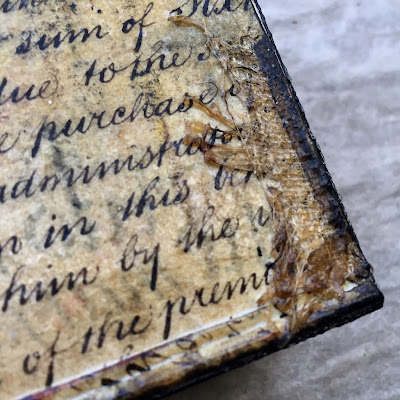 sum of
due to the
purchase
administrator
in this
him by the
of the premi